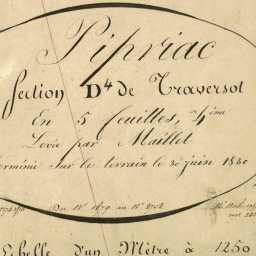 Pipriac
Section D4 de Traversot
En 5 feuilles, 4ème
Levée par Maillet
Terminé sur le terrain le 30 juin 1830
Du N° 1679 au N° 2102
Echelle d'un Mètre à 1250